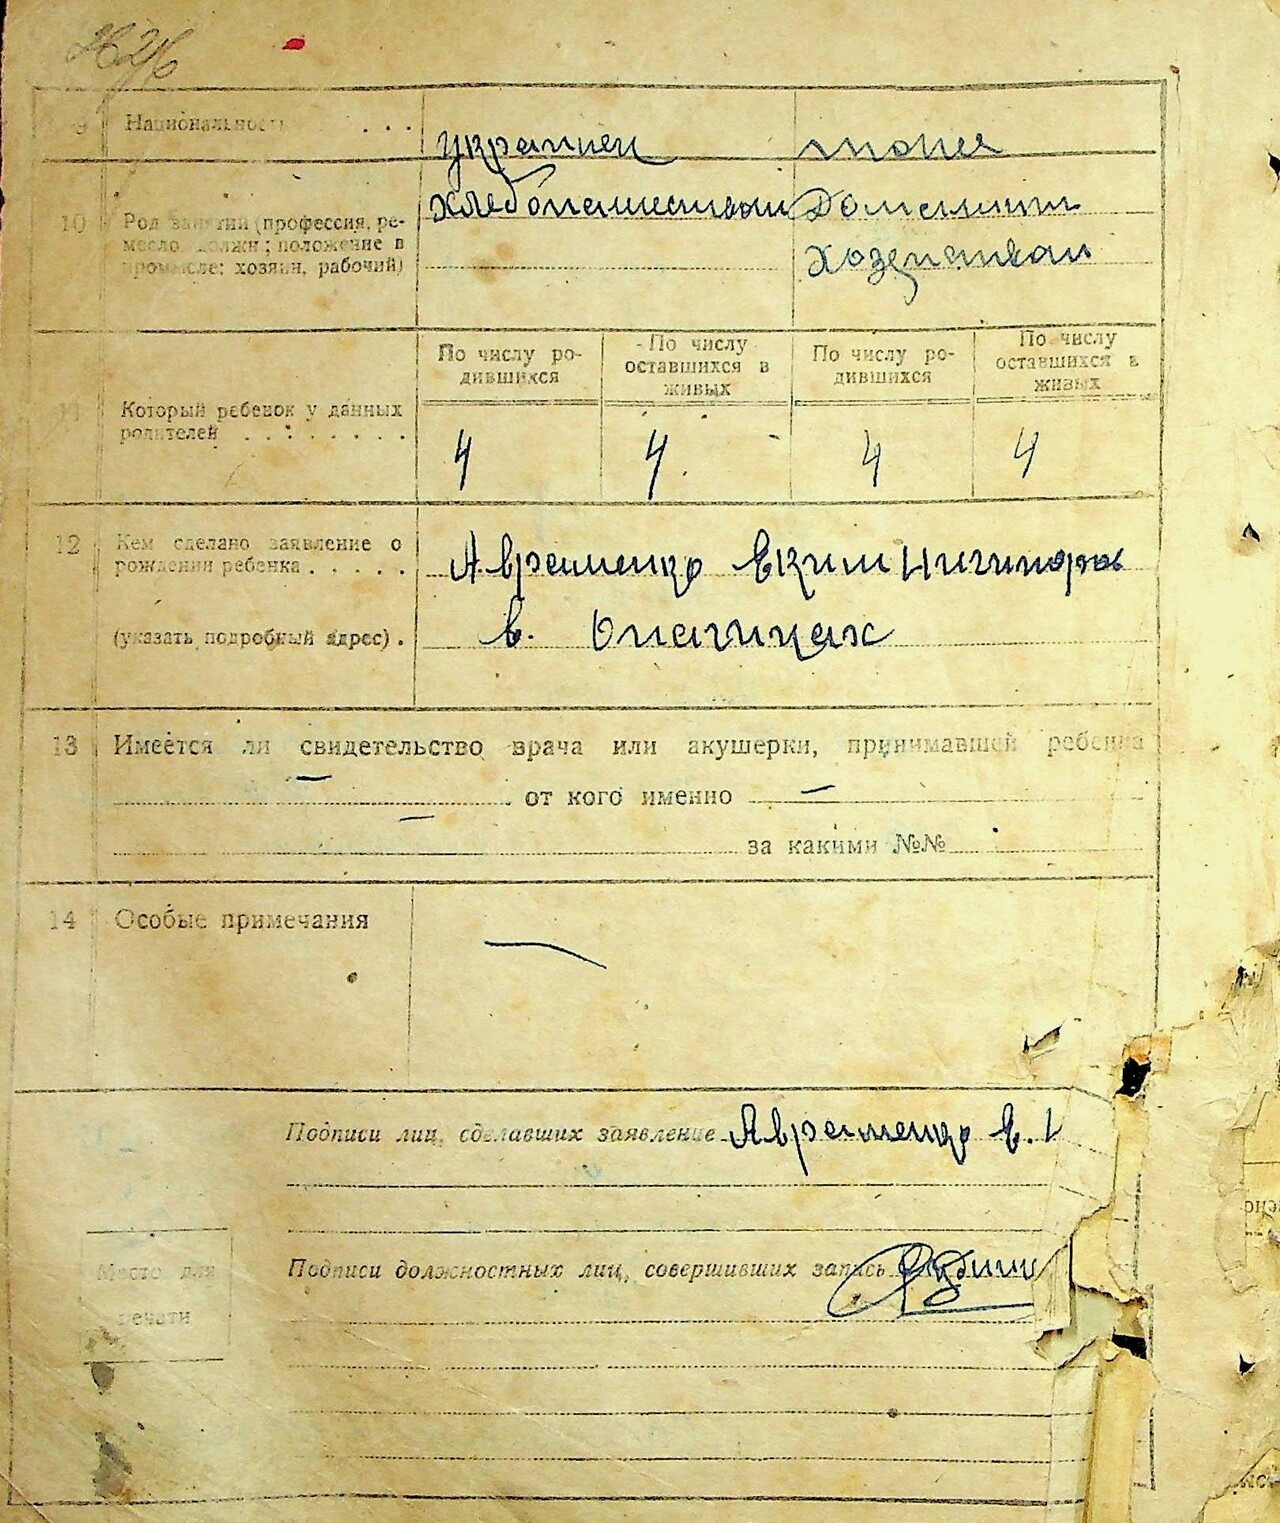 9 Национальность . . . украинец тоже
10 Род занятий (профессия, ре-
месло, должн; положение в
промысле: хозяин, рабочий)
хлебопашеством Домашним
хозепством
По числу ро-
дившихся
По числу
оставшихся в
живых
По числу ро-
дившихся
По число
оставшихся в
живых
11 Который ребенок у данных
родителей . . . . . . . .
4 4. 4 4
12 Кем сделано заявление о
рождении ребенка . . . . .
(указать подробный адрес) .
Авраменко Еким
в.
13 Имеется ли свидетельство врача или акушерки, принимавшей ребенка
— . от кого именно —
— за какими №№
14 Особые примечания —
Подписи лиц, сделавших заявление Авраменко Е.
Подписи должностных лиц, совершивших запись
Место для
печати